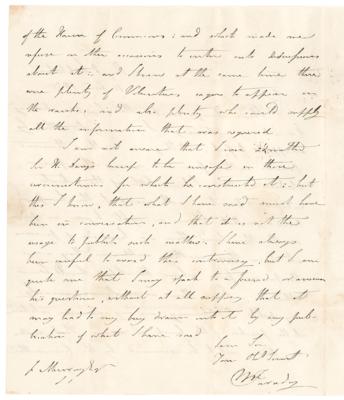 of the House of Commons: and which made me
refuse on other occasions to enter into discussions
about it:- and I knew at the same time there
were plenty of Volunteers eager to appear in
the ranks: and also plenty who could supply
all the information that was required
I am not aware that I ever admitted
Sir H. Davy's lamp to be unsafe in those
circumstances for which he constructed it:- but
this I know, that what I have said must have
been in conversation, and that it is not the
usage to publish such matters. I have always
been careful to avoid this controversy, but I am
quite sure that I may speak to a friend or answer
his questions, without at all supposing that it
may lead to my being drawn into it by any pub-
lication of what I have said
I am Sir
Your Obdt Servant
M Faraday
J Murray Esq